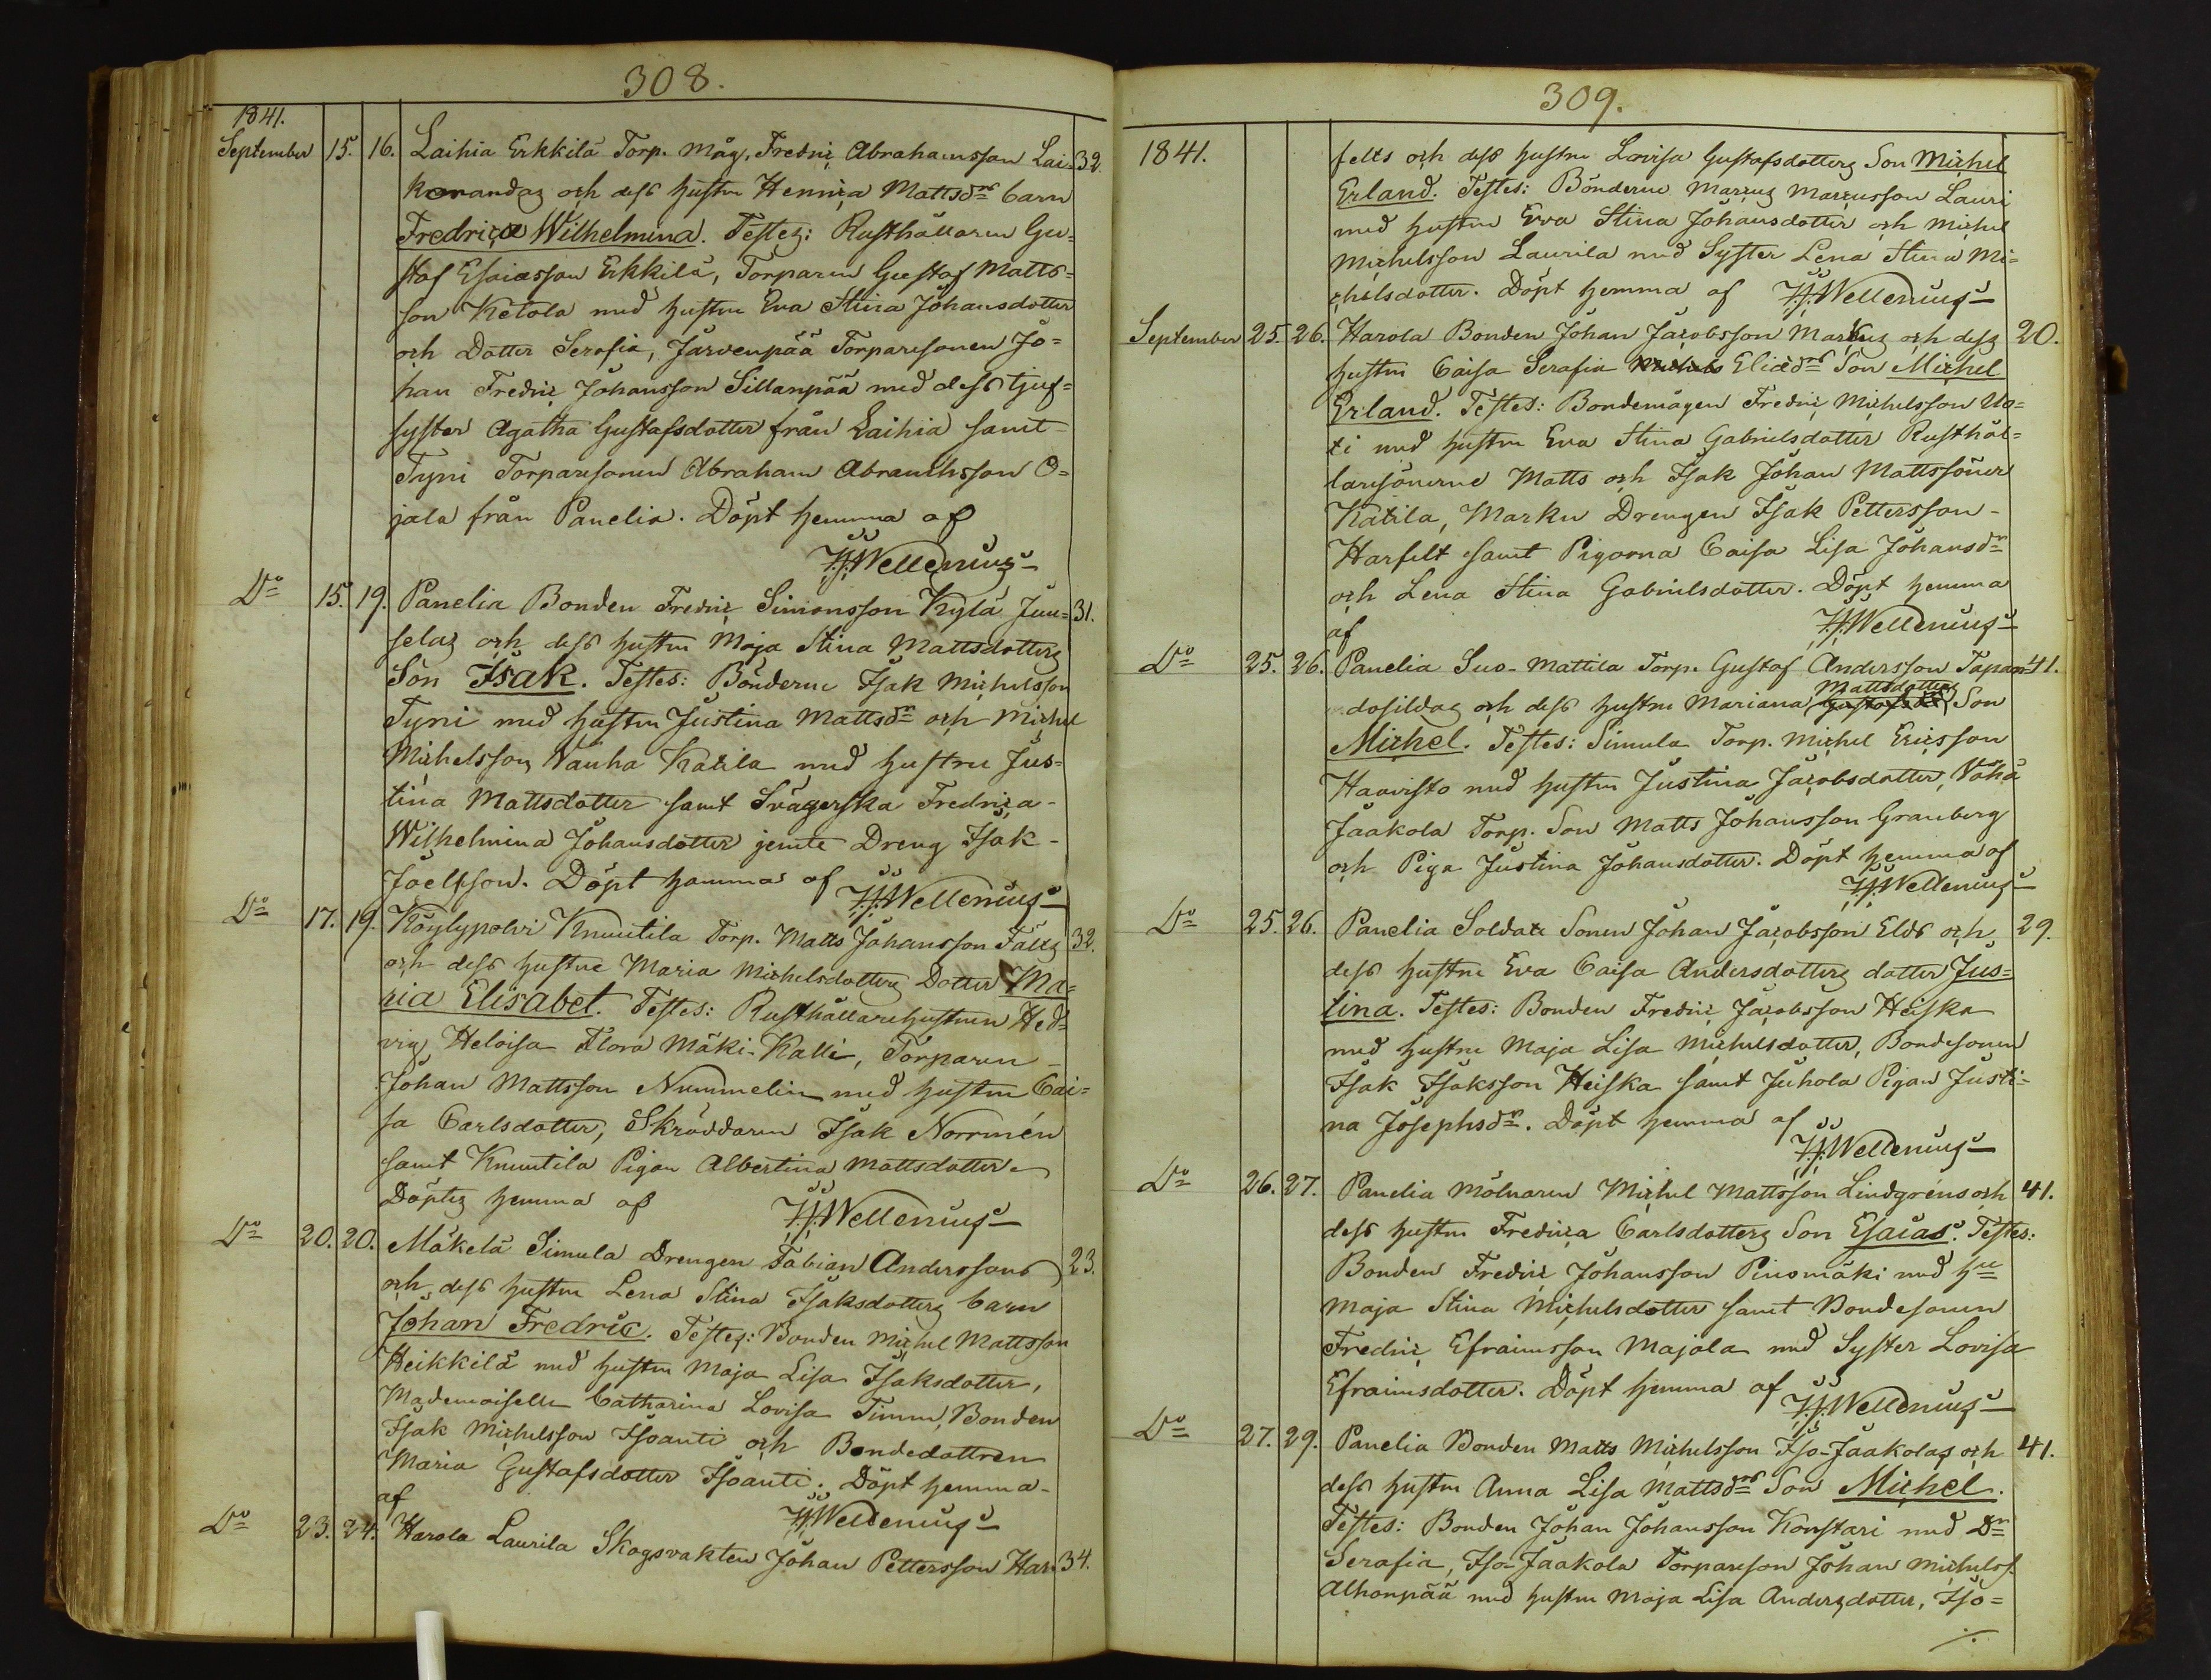 308.
1841.
September 15. 16. Laihia Erkkilä Torp. måg. Fredric Abrahamsson Lai= 32.
komandag och dess hustru Henrica Mattsdrs barn
Fredrica Wilhelmina. Testes: Rusthållaren Gu=
staf Esaiasson Erkkilä, Torparen Gustaf Matts=
son Ketola med hustru Eva Stina Johansdotter
och Dotter Serafia, Järvenpää Torparesonen Jo=
han Fredric Johansson Sillanpää med dess tjuf=
syster Agatha Gustafsdotter från Laihia samt
Tyni Torparesonen Abraham Abramsson O=
jala från Panelia. Döpt hemma af
H.J. Wellenius
Do 15. 19. Panelia Bonden Fredric Simonsson Kylä Jun= 31.
selas och dess hustru Maja Stina Mattsdotters
Son Isak. Testes: Bönderne Isak Michelsson
Tyni med hustru Justina Mattsdr och Michel
Michelsson Vanha Katila med hustru Jus=
tina Mattsdotter samt Svägerska Fredrica
Wilhelmina Johansdotter jemte Dreng Isak
Joelsson. Döpt hemma af H.J. Wellenius
Do 17. 19. Köylypolvi Knuutila Torp. Matts Johansson Fälts 32.
och dess hustru Maria Michelsdotters Dotter Ma=
ria Elisabet. Testes: Rusthållarehustrun Hed=
vig Heloisa Flora Mäki-Kalli, Torparen
Johan Mattsson Nummelin med hustru Cai=
sa Carlsdotter, Skräddaren Isak Norrmén
samt Knuutila Pigan Albertina Mattsdotter
Döptes hemma af H.J. Wellenius
Do 20. 20. Mäkelä Simula Drengen Fabian Anderssons 23.
och dess hustru Lena Stina Isaksdotters barn
Johan Fredric. Testes: Bonden Michel Mattsson
Heikkilä med hustru Maja Lisa Isaksdotter,
Mademoiselle Catharina Lovisa Timm, Bonden
Isak Michelsson Isoanti och Bondedottren
Maria Gustafsdotter Isoanti. Döpt hemma
af H.J. Wellenius
Do 23. 24. Harola Laurila Skogsvakten Johan Pettersson Har= 34.
309.
1841.
felts och dess hustru Lovisa Gustafsdotters Son Michel
Erland. Testes: Bönderne Marcus Marcusson Lauri
med hustru Eva Stina Johansdotter och Michel
Michelsson Laurila med Syster Lena Stina Mi=
chelsdotter. Döpt hemma af H.J. Wellenius
September 25. 26. Harola Bonden Johan Jacobsson Markus och dess 20.
hustru Caisa Serafia Eliædrs Son Michel
Erland. Testes: Bondemågen Fredric Michelsson Uo=
ti med hustru Eva Stina Gabrielsdotter Rusthål=
laresönerne Matts och Isak Johan Mattssöner
Katila, Marku Drengen Isak Pettersson
Harfelt samt Pigorna Caisa Lisa Johansdr
och Lena Stina Gabrielsdotter. Döpt hemma
af H.J. Wellenius
Do 25. 26. Panelia Suo-Mattila Torp. Gustaf Andersson Tapan= 41.
Mattsdotters
dosildas och dess hustru Mariana Gustafsdrs Son
Michel. Testes: Simula Torp. Michel Ericsson
Haavisto med hustru Justina Jacobsdotter, Vähä
Jaakola Torp. Son Matts Johansson Granberg
och Piga Justina Johansdotter. Döpt hemma af
H.J. Wellenius
Do 25. 26. Panelia Soldate Sonen Johan Jacobsson Elds och 29.
dess hustru Eva Caisa Andersdotters dotter Jus=
tina. Testes: Bonden Fredric Jacobsson Heiska
med hustru Maja Lisa Michelsdotter, Bondesonen
Isak Isaksson Heiska samt Juhola Pigan Justi=
na Josephsdr. Döpt hemma af
H.J. Wellenius
Do 26. 27. Panelia Mölnaren Michel Mattsson Lindgréns och 41.
dess hustru Fredrica Carlsdotters Son Esaias. Testes:
Bonden Fredric Johansson Pinomäki med hu
Maja Stina Michelsdotter samt Bondesonen
Fredric Efraimsson Majala med Syster Lovisa
Efraimsdotter. Döpt hemma af H.J. Wellenius
Do 27. 29. Panelia Bonden Matts Michelsson Iso-Jaakolas och 41.
dess hustru Anna Lisa Mattsdrs Son Michel.
Testes: Bonden Johan Johansson Konstari med Dr
Serafia, Iso-Jaakola Torpareson Johan Michelss.
Alhonpää med hustru Maja Lisa Andersdotter, Iso=